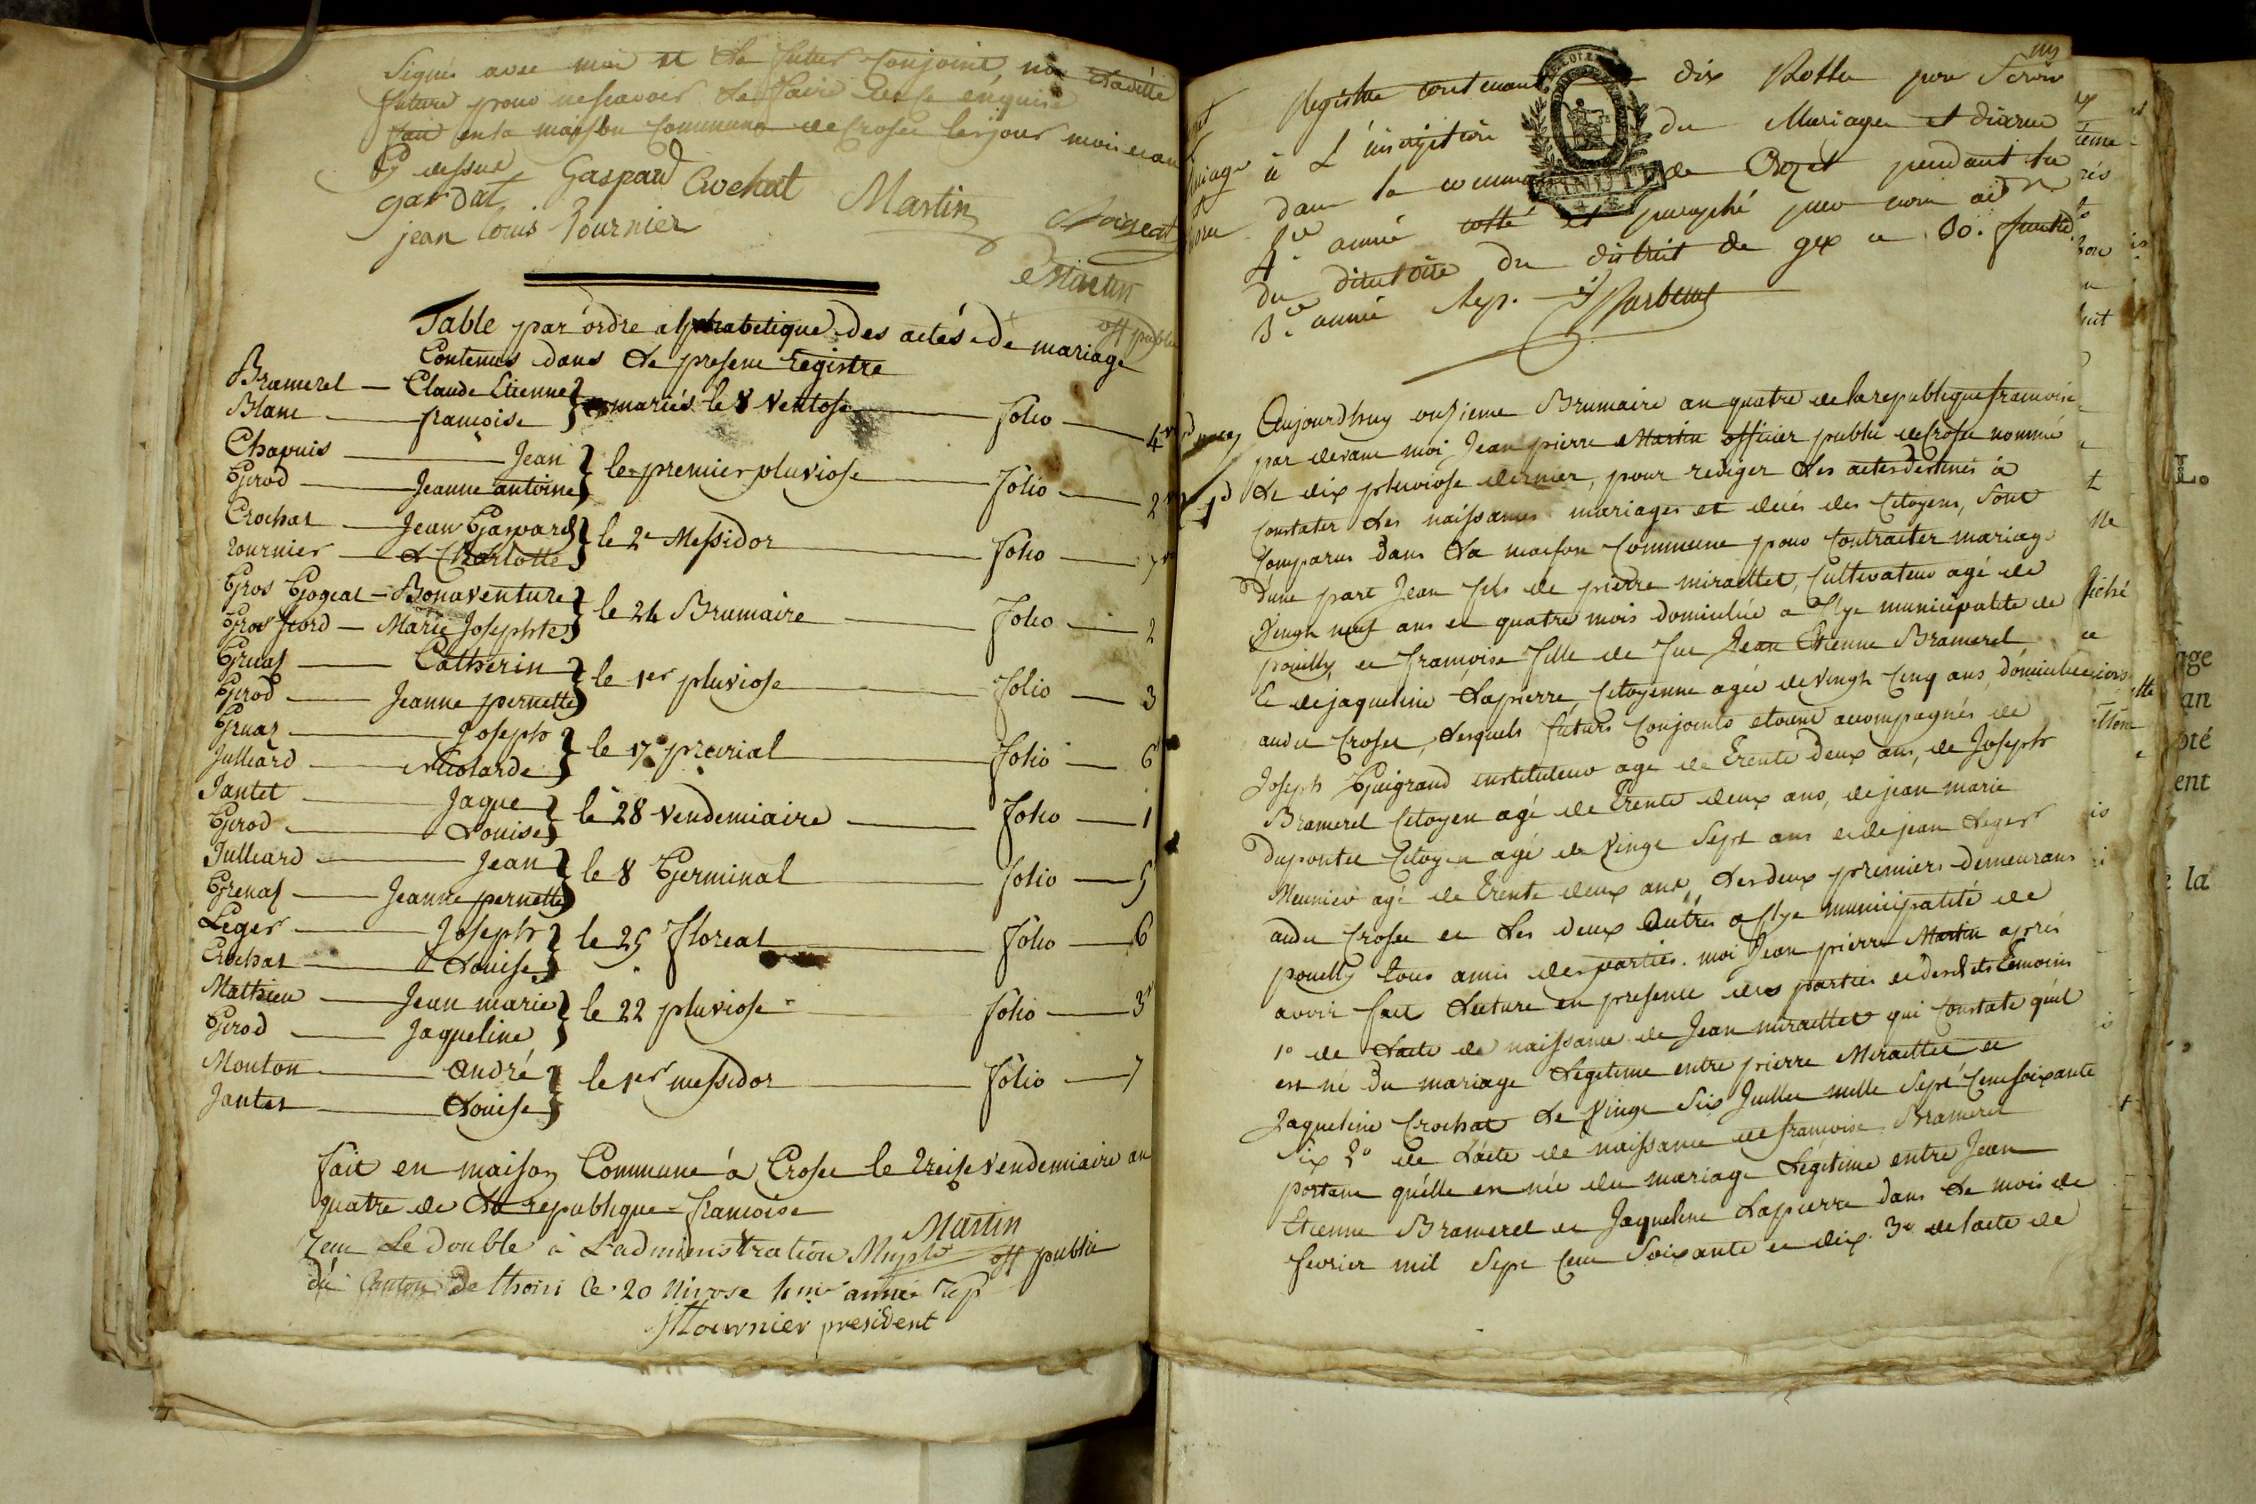 Signés avec moi et le futur conjoint, non laditte
future pour ne scavoir le faire de ce enquise
fait en la maison Commune de Crosee les jour mois et an
Cy dessus
gardat Gaspard Crochat Martin
jean louis Fournier
Martin
off public
Table par ordre alphabetique des actes de mariage
Contenus dans le presene registre
Bramerel — Claude Etienne } mariés le 8 Ventose — folio — 4
Blanc — francoise
Chapuis — Jean } le premier pluviose — folio — 2
Girod — Jeanne antoine
Crochat — Jean Gaspard } le 2e Messidor — folio — 7
Tournier — Charlotte
Gros Gogeat — Bonaventure } le 24 Brumaire — folio — 2
Gros fiord — Marie Josephte
Gruaz — Catherin } le 1er pluviose — folio — 3
Girod — Jeanne pernette
Gruaz — Joseph } le 17 prairial — folio — 6
Julliard — Nicolarde
Jantet — Jaque } le 28 vendemiaire — folio — 1
Girod — Louise
Julliard — Jean } le 8 Germinal — folio — 5
Grenaz — Jeanne pernette
Leger — Joseph } le 25 floreal — folio — 6
Crochat — Louise
Mathieu — Jean marie } le 22 pluviose — folio — 3
Girod — Jaqueline
Monton — andré } le 1er messidor — folio — 7
Jantet — Louise
fait en maison Commune à Crosee le treise vendemiaire an
quatre de la republique francoise
Martin
off public
le double à l'administration Muple
du Canton de thoiri le 20 nivose 4me année rep
Fournier president
Registre contenant dix Rolles pour Servir
à L'inscription du Mariage et divorce
dans la commune de Crozet pendant la
4e année cotté et paraphé par nous
du directoire du district de gex ce 30. fructidor
3e année Rep.
Aujourd'huy onsieme Brumaire an quatre de la republique francoise
par devant moi Jean pierre Martin officier public de Crosee nommé
le dix pluviose dernier, pour rediger les actes destinés à
constater les naissances mariages et décés des Citoyens, sont
Comparus dans la maison Commune pour Contracter mariage
d'une part Jean fils de pierre miraillet, Cultivateur agé de
Vingt neuf ans et quatre mois domicilié a flye municipalité de
pouilly, et francoise fille de feu Jean Etienne Bramerel
Et de jaqueline Lapierre, Citoyenne agée de Vingt Cinq ans, domiciliée
audit Crosee, lesquels futurs Conjoints etoient acompagnés de
Joseph Guigrand instituteur age de Trente deux ans, de Joseph
Bramerel Citoyen agé de Trente deux ans, de jean marie
Dupontet Citoyen agé de Vingt Sept ans et de jean Leger
Meunier agé de Trente deux ans, les deux premiers demeurans
audit Crosee et les deux autres a flye municipalité de
pouilly tous amis des parties. moi Jean pierre Martin après
avoir fait Lecture en presence des parties et desdits témoins
1° de L'acte de naissance de Jean miraillet qui Constate qu'il
est né du mariage Legitime entre pierre Miraillet et
Jaqueline Crochat le Vingt Six Juillet mille Sept Cent soixante
Six 2° de L'acte de naissance de francoise Bramerel
portant qu'elle est née du mariage Legitime entre Jean
Etienne Bramerel et Jaqueline Lapierre dans le mois de
fevrier mil Sept Cent Soixante et dix. 3° de L'acte de